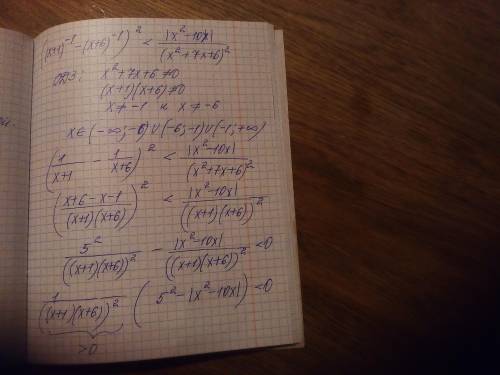 ((x+1)⁻¹ - (x+6)⁻¹)² < |x²-10x| / (x²+7x+6)²
ОДЗ: x²+7x+6 ≠ 0
(x+1)(x+6) ≠ 0
x ≠ -1 и x ≠ -6
x ∈ (-∞; -6) ∪ (-6; -1) ∪ (-1; +∞)
(1/(x+1) - 1/(x+6))² < |x²-10x| / (x²+7x+6)²
((x+6-x-1) / ((x+1)(x+6)))² < |x²-10x| / ((x+1)(x+6))²
5² / ((x+1)(x+6))² - |x²-10x| / ((x+1)(x+6))² < 0
1 / ((x+1)(x+6))² (5² - |x²-10x|) < 0
>0